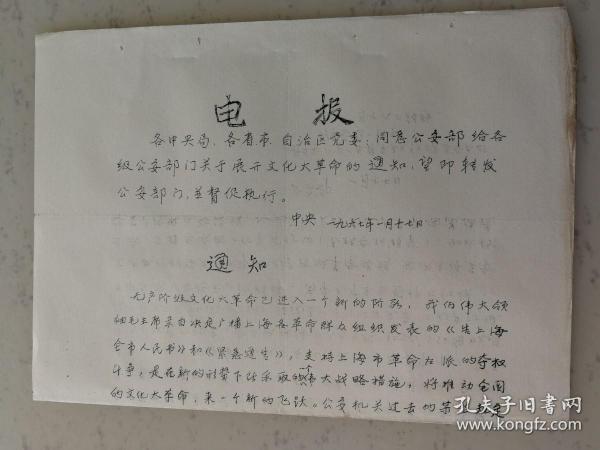 电 报
各中央局、各省市、自治区党委：同意公安部给各
级公安部门关于展开文化大革命的通知，望即转发
公安部门，並督促执行。
中央 一九六七年一月十七日
通 知
无产阶级文化大革命已进入一个新的阶段，我们伟大领
袖毛主席亲自决定广播上海各革命群众组织发表的《告上海
全市人民书》和《紧急通告》，支持上海市革命左派的夺权
斗争，是在新的形势下所采取的一个伟大战略措施，将推动全国
的文化大革命，来一个新的飞跃。公安机关过去的某些规定
孔夫子旧书网
www.kongfz.com